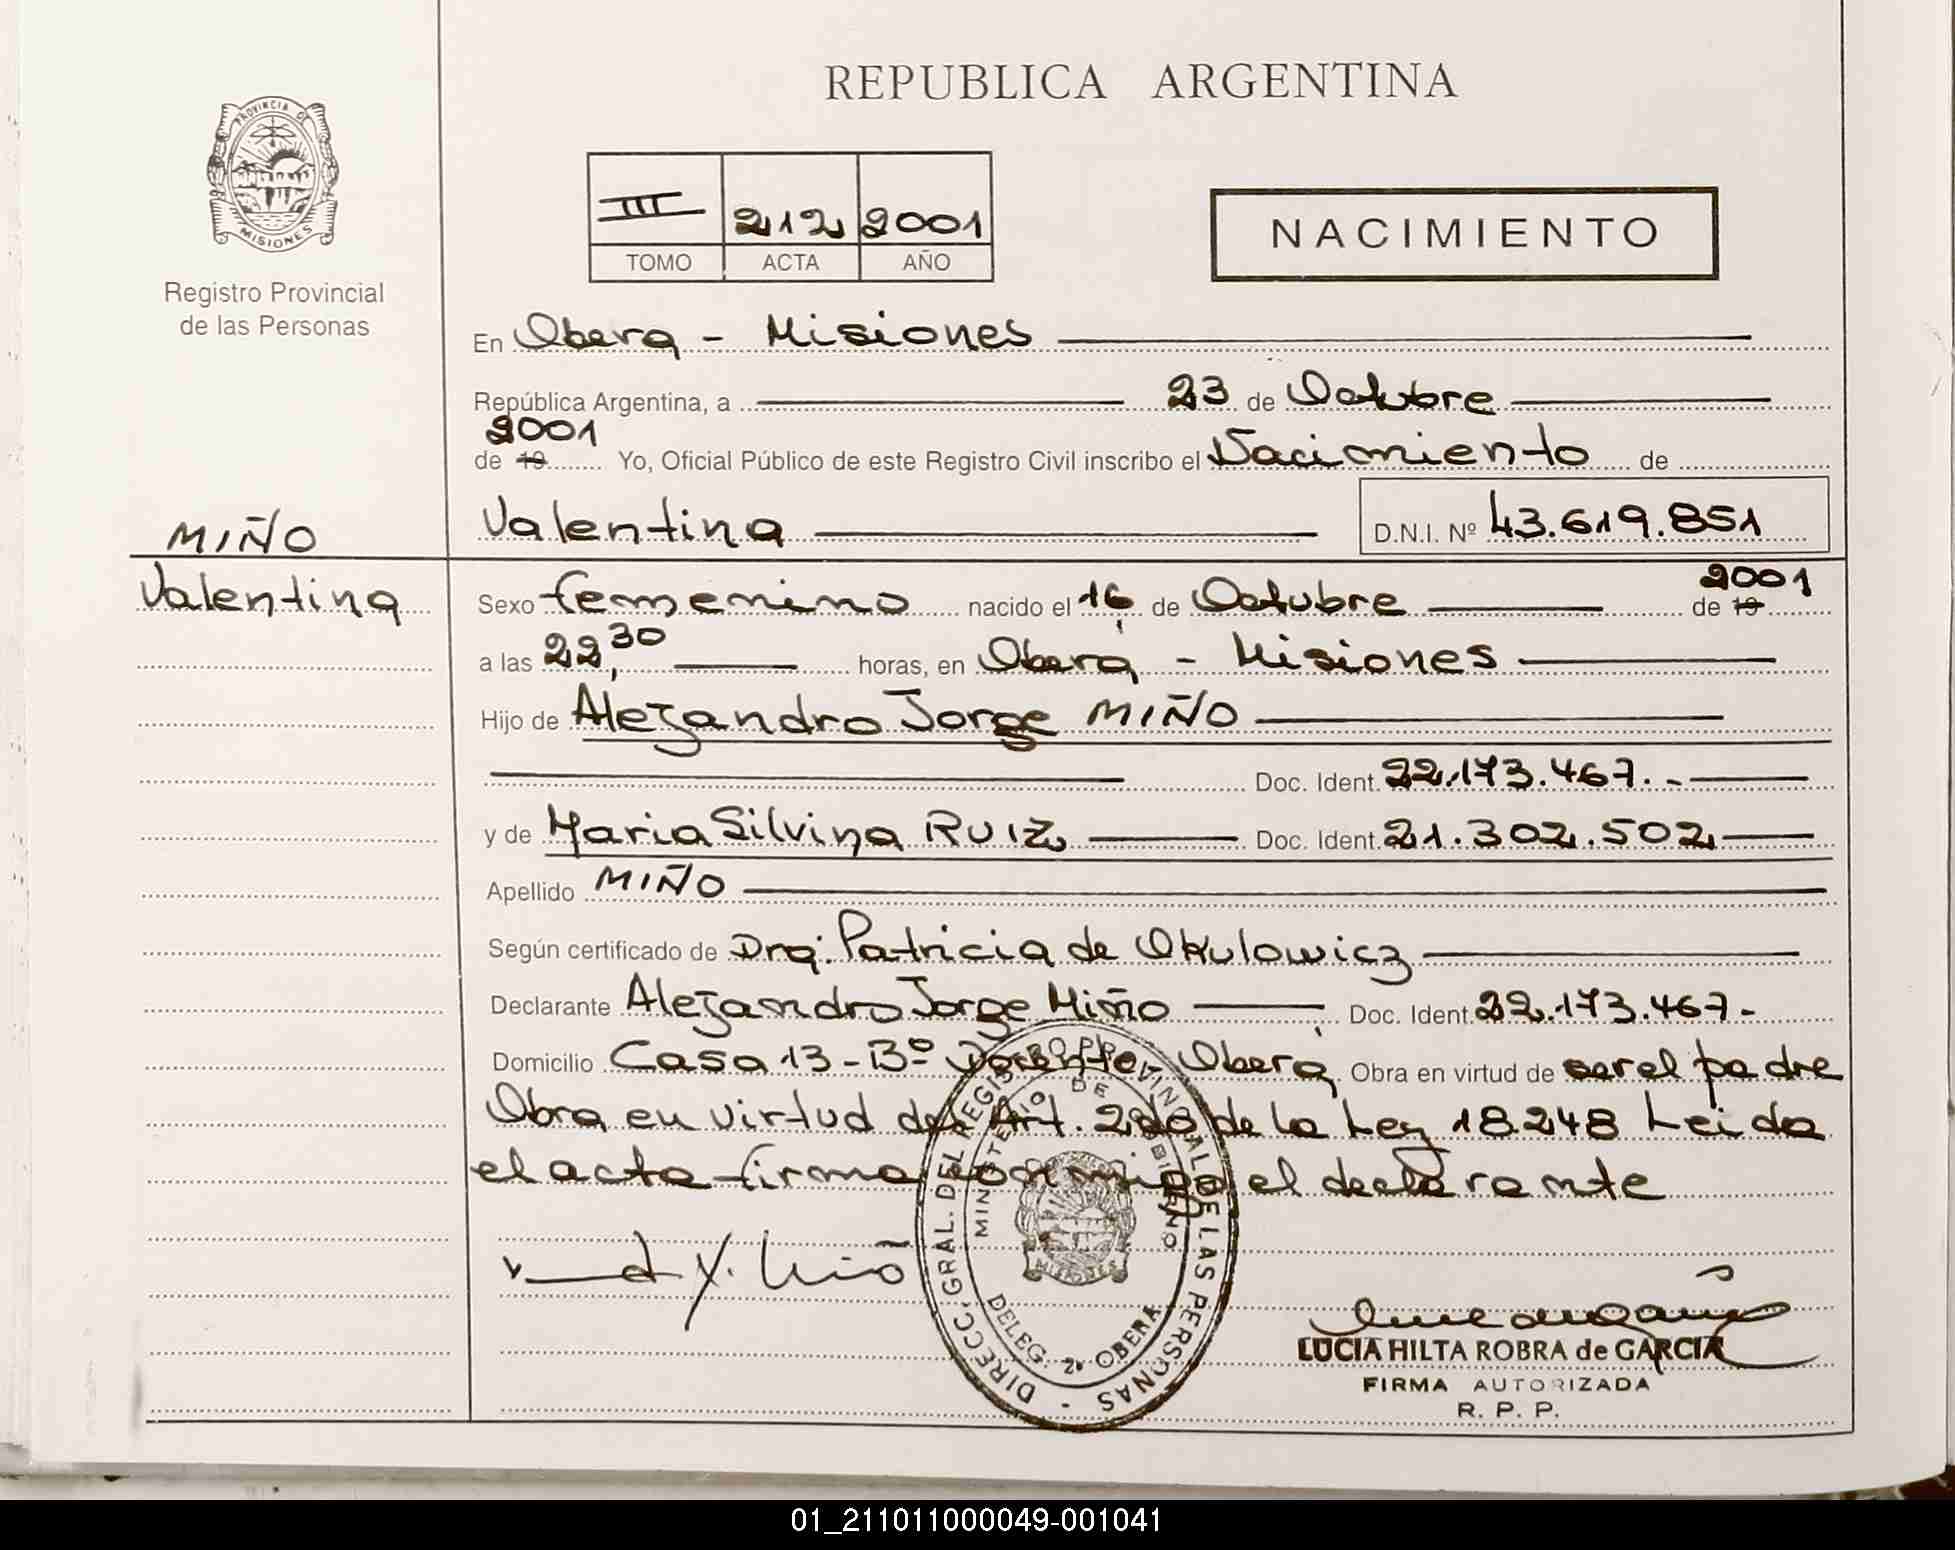 REPUBLICA ARGENTINA
PROVINCIA DE
MISIONES
Registro Provincial
de las Personas
III 212 2001
TOMO ACTA AÑO
NACIMIENTO
En Obera - Misiones
República Argentina, a 23 de Octubre
2001
de 19 Yo, Oficial Público de este Registro Civil inscribo el Nacimiento de
Valentina D.N.I. Nº 43.619.851
MIÑO
Valentina
2001
Sexo femenino nacido el 16 de Octubre de 19
a las 22,30 horas, en Obera - Misiones
Hijo de Alejandro Jorge MIÑO
Doc. Ident. 22.173.467.-
y de Maria Silvina RUIZ Doc. Ident. 21.302.502
Apellido MIÑO
Según certificado de Dra: Patricia de Okulowicz
Declarante Alejandro Jorge Miño Doc. Ident. 22.173.467-
Domicilio Casa 13-Bº Obera Obra en virtud de ser el padre
Obra en virtud del Art. 2do de la Ley 18.248 Leida
el acta firma conmigo el declarante
Miño
DIRECC. GRAL. DEL REGISTRO PROVINCIAL DE LAS PERSONAS -
MINISTERIO DE GOBIERNO
MISIONES
DELEG. 2ª OBERA
LUCIA HILTA ROBRA de GARCIA
FIRMA AUTORIZADA
R. P. P.
01_211011000049-001041